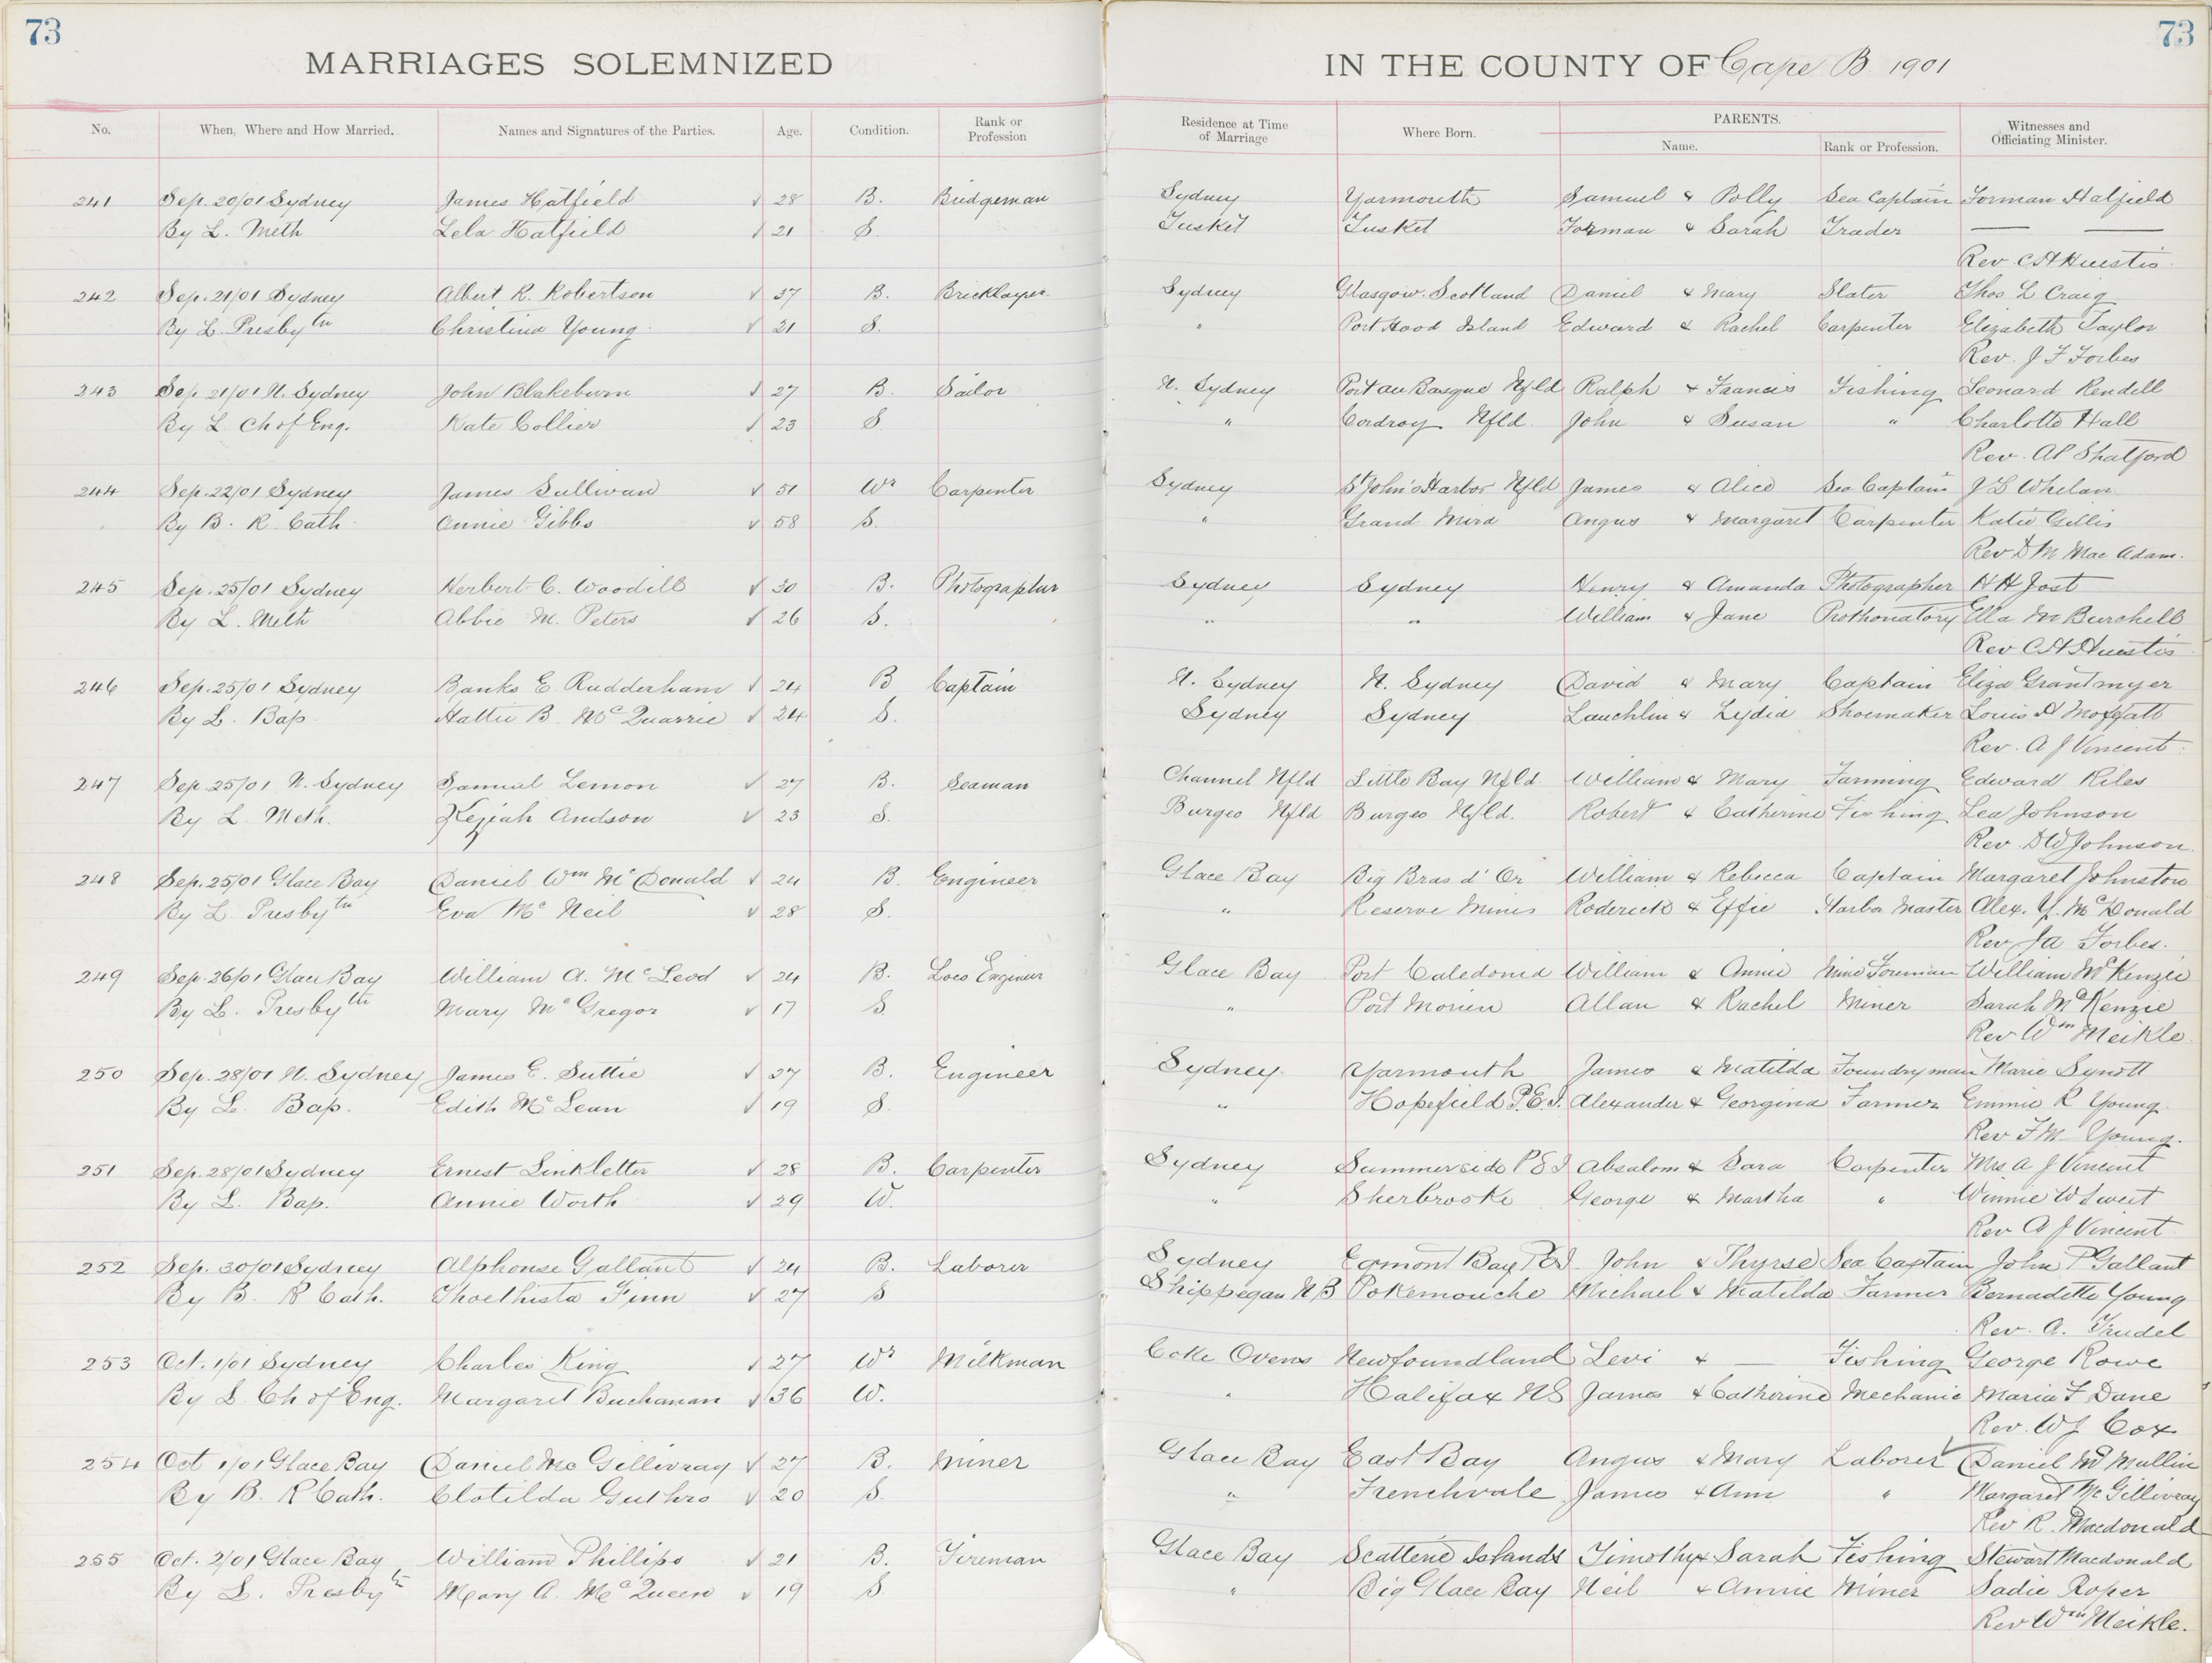 73 73
MARRIAGES SOLEMNIZED IN THE COUNTY OF Cape B 1901
No. When, Where and How Married. Names and Signatures of the Parties. Age. Condition. Rank or Profession Residence at Time of Marriage Where Born. PARENTS. Name. Rank or Profession. Witnesses and Officiating Minister.
241 Sep. 20/01 Sydney James Hatfield √ 28 B. Bridgeman Sydney Yarmouth Samuel & Polly Sea Captain Forman Hatfield
By L. Meth Lela Hatfield √ 21 S. Tusket Tusket Forman & Sarah Trader — —
Rev C H Huestis
242 Sep. 21/01 Sydney Albert R. Robertson √ 37 B. Bricklayer Sydney Glasgow. Scotland Daniel & Mary Slater Thos L Craig
By L. Presbytn Christina Young √ 21 S. " Port Hood Island Edward & Rachel Carpenter Elizabeth Taylor
Rev. J F Forbes
243 Sep 21/01 N. Sydney John Blakeburn √ 27 B. Sailor N. Sydney Port au Basque Nfld Ralph & Francis Fishing Leonard Rendell
By L Ch of Eng. Kate Collier √ 23 S. " Cordroy Nfld. John & Susan " Charlotte Hall
Rev. A P Shatford
244 Sep. 22/01 Sydney James Sullivan √ 51 Wr Carpenter Sydney St John's Harbor Nfld James & Alice Sea Captain J L Whelan
By B. R Cath. Annie Gibbs √ 58 S. " Grand Mira Angus & Margaret Carpenter Katie Gillis
Rev D M Mac Adam.
245 Sep. 25/01 Sydney Herbert C. Woodill √ 30 B. Photographer Sydney Sydney Henry & Amanda Photographer H H Jost
By L. Meth Abbie M. Peters √ 26 S. " " William & Jane Prothonatory Ella M Burchell
Rev C H Huestis
246 Sep. 25/01 Sydney Banks E. Rudderham √ 24 B Captain N. Sydney N. Sydney David & Mary Captain Eliza Grantmyer
By L. Bap. Hattie B. McQuarrie √ 24 S. Sydney Sydney Lauchlin & Lydia Shoemaker Louis H Moffatt
Rev. A J Vincent.
247 Sep. 25/01 N. Sydney Samuel Lemon √ 27 B. Seaman Channel Nfld Little Bay Nfld. William & Mary Farming Edward Riles
By L. Meth. Keziah Andson √ 23 S. Burgeo Nfld Burgeo Nfld. Robert & Catherine Fishing Lea Johnson
Rev. D W Johnson.
248 Sep. 25/01 Glace Bay Daniel Wm McDonald √ 24 B. Engineer Glace Bay Big Bras d' Or William & Rebecca Captain Margaret Johnston
By L. Presbytn Eva McNeil √ 28 S. " Reserve Mines Roderick & Effie Harbor Master Alex. Y. McDonald
Rev. J A Forbes.
249 Sep. 26/01 Glace Bay William A. McLeod √ 24 B. Loco Engineer Glace Bay Port Caledonia William & Annie Mine Foreman William McKenzie
By L. Presbytn Mary McGregor √ 17 S " Port Morien Allan & Rachel Miner Sarah McKenzie
Rev Wm Meikle
250 Sep. 28/01 N. Sydney James E. Suttie √ 27 B. Engineer Sydney Yarmouth James & Matilda Foundryman Marie Synott
By L. Bap. Edith McLean √ 19 S. " Hopefield P.E.I. Alexander & Georgina Farmer Emmie R Young
Rev F M Young.
251 Sep. 28/01 Sydney Ernest Linkletter √ 28 B. Carpenter Sydney Summerside P E I Absalom & Sara Carpenter Mrs A J Vincent
By L. Bap. Annie Worth √ 29 W. " Sherbrooke George & Martha " Winnie W Sweet
Rev A J Vincent
252 Sep. 30/01 Sydney Alphonse Gallant √ 24 B. Laborer Sydney Egmont Bay P E I John & Thyrse Sea Captain John P Gallant
By B. R Cath. Thoethista Finn √ 27 S Shippegan N B Pokemouche Michael & Matilda Farmer Bernadette Young
Rev. A. Trudel
253 Oct. 1/01 Sydney Charles King √ 27 Wr Milkman Coke Ovens Newfoundland Levi & — Fishing George Rowe
By L Ch of Eng. Margaret Buchanan √ 36 W. " Halifax NS James & Catherine Mechanic Maria F Dane
Rev. W J Cox
254 Oct 1/01 Glace Bay Daniel McGillivray √ 27 B. Miner Glace Bay East Bay Angus & Mary Laborer √ Daniel McMullin
By B. R Cath. Clotilda Guthro √ 20 S. " Frenchvale James & Ann " Margaret McGillivray
Rev R. Macdonald
255 Oct. 2/01 Glace Bay William Phillips √ 21 B. Fireman Glace Bay Scatterie Islands Timothy & Sarah Fishing Stewart Macdonald
By L. Presbytn Mary A. McQueen √ 19 S " Big Glace Bay Neil & Annie Miner Sadie Roper
Rev Wm Meikle.